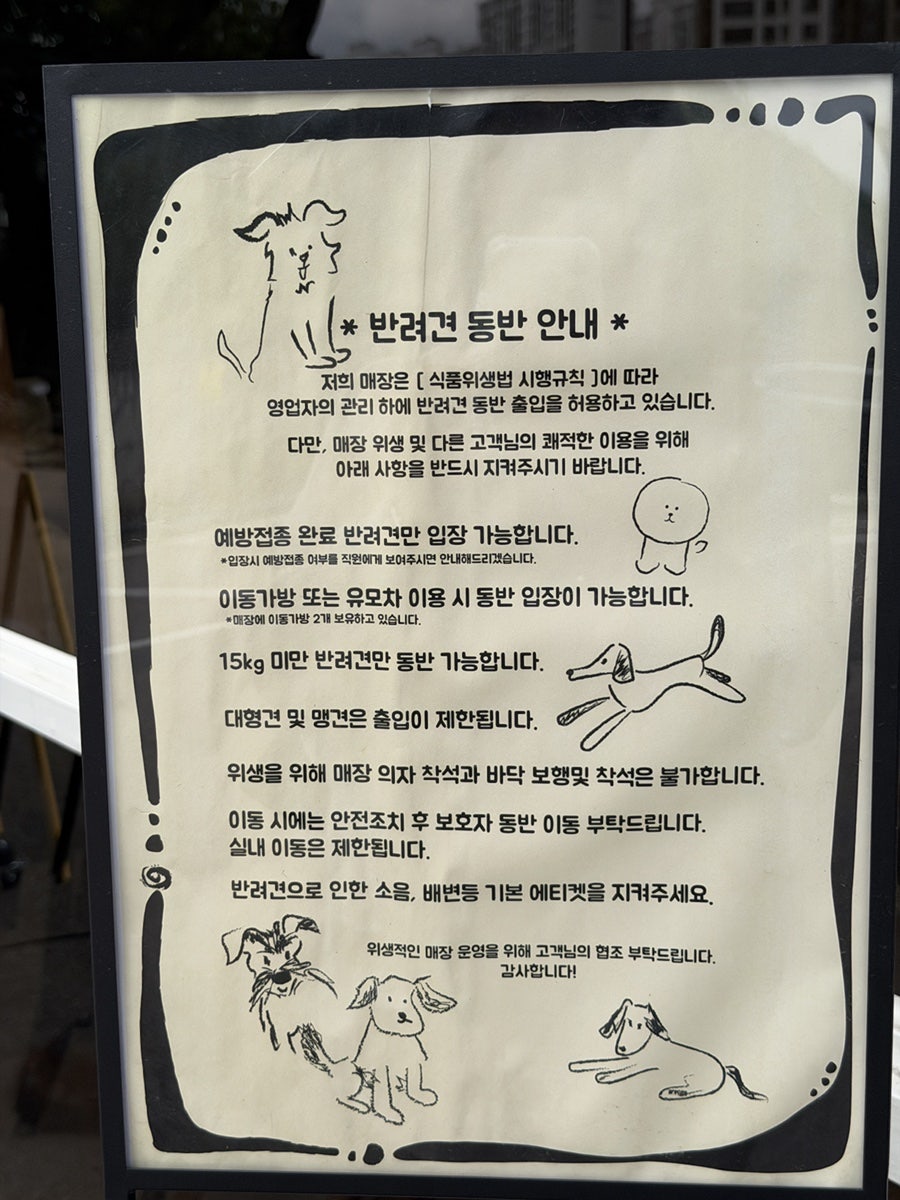 * 반려견 동반 안내 *
저희 매장은 [ 식품위생법 시행규칙 ]에 따라
영업자의 관리 하에 반려견 동반 출입을 허용하고 있습니다.
다만, 매장 위생 및 다른 고객님의 쾌적한 이용을 위해
아래 사항을 반드시 지켜주시기 바랍니다.
예방접종 완료 반려견만 입장 가능합니다.
*입장시 예방접종 여부를 직원에게 보여주시면 안내해드리겠습니다.
이동가방 또는 유모차 이용 시 동반 입장이 가능합니다.
*매장에 이동가방 2개 보유하고 있습니다.
15kg 미만 반려견만 동반 가능합니다.
대형견 및 맹견은 출입이 제한됩니다.
위생을 위해 매장 의자 착석과 바닥 보행및 착석은 불가합니다.
이동 시에는 안전조치 후 보호자 동반 이동 부탁드립니다.
실내 이동은 제한됩니다.
반려견으로 인한 소음, 배변등 기본 에티켓을 지켜주세요.
위생적인 매장 운영을 위해 고객님의 협조 부탁드립니다.
감사합니다!